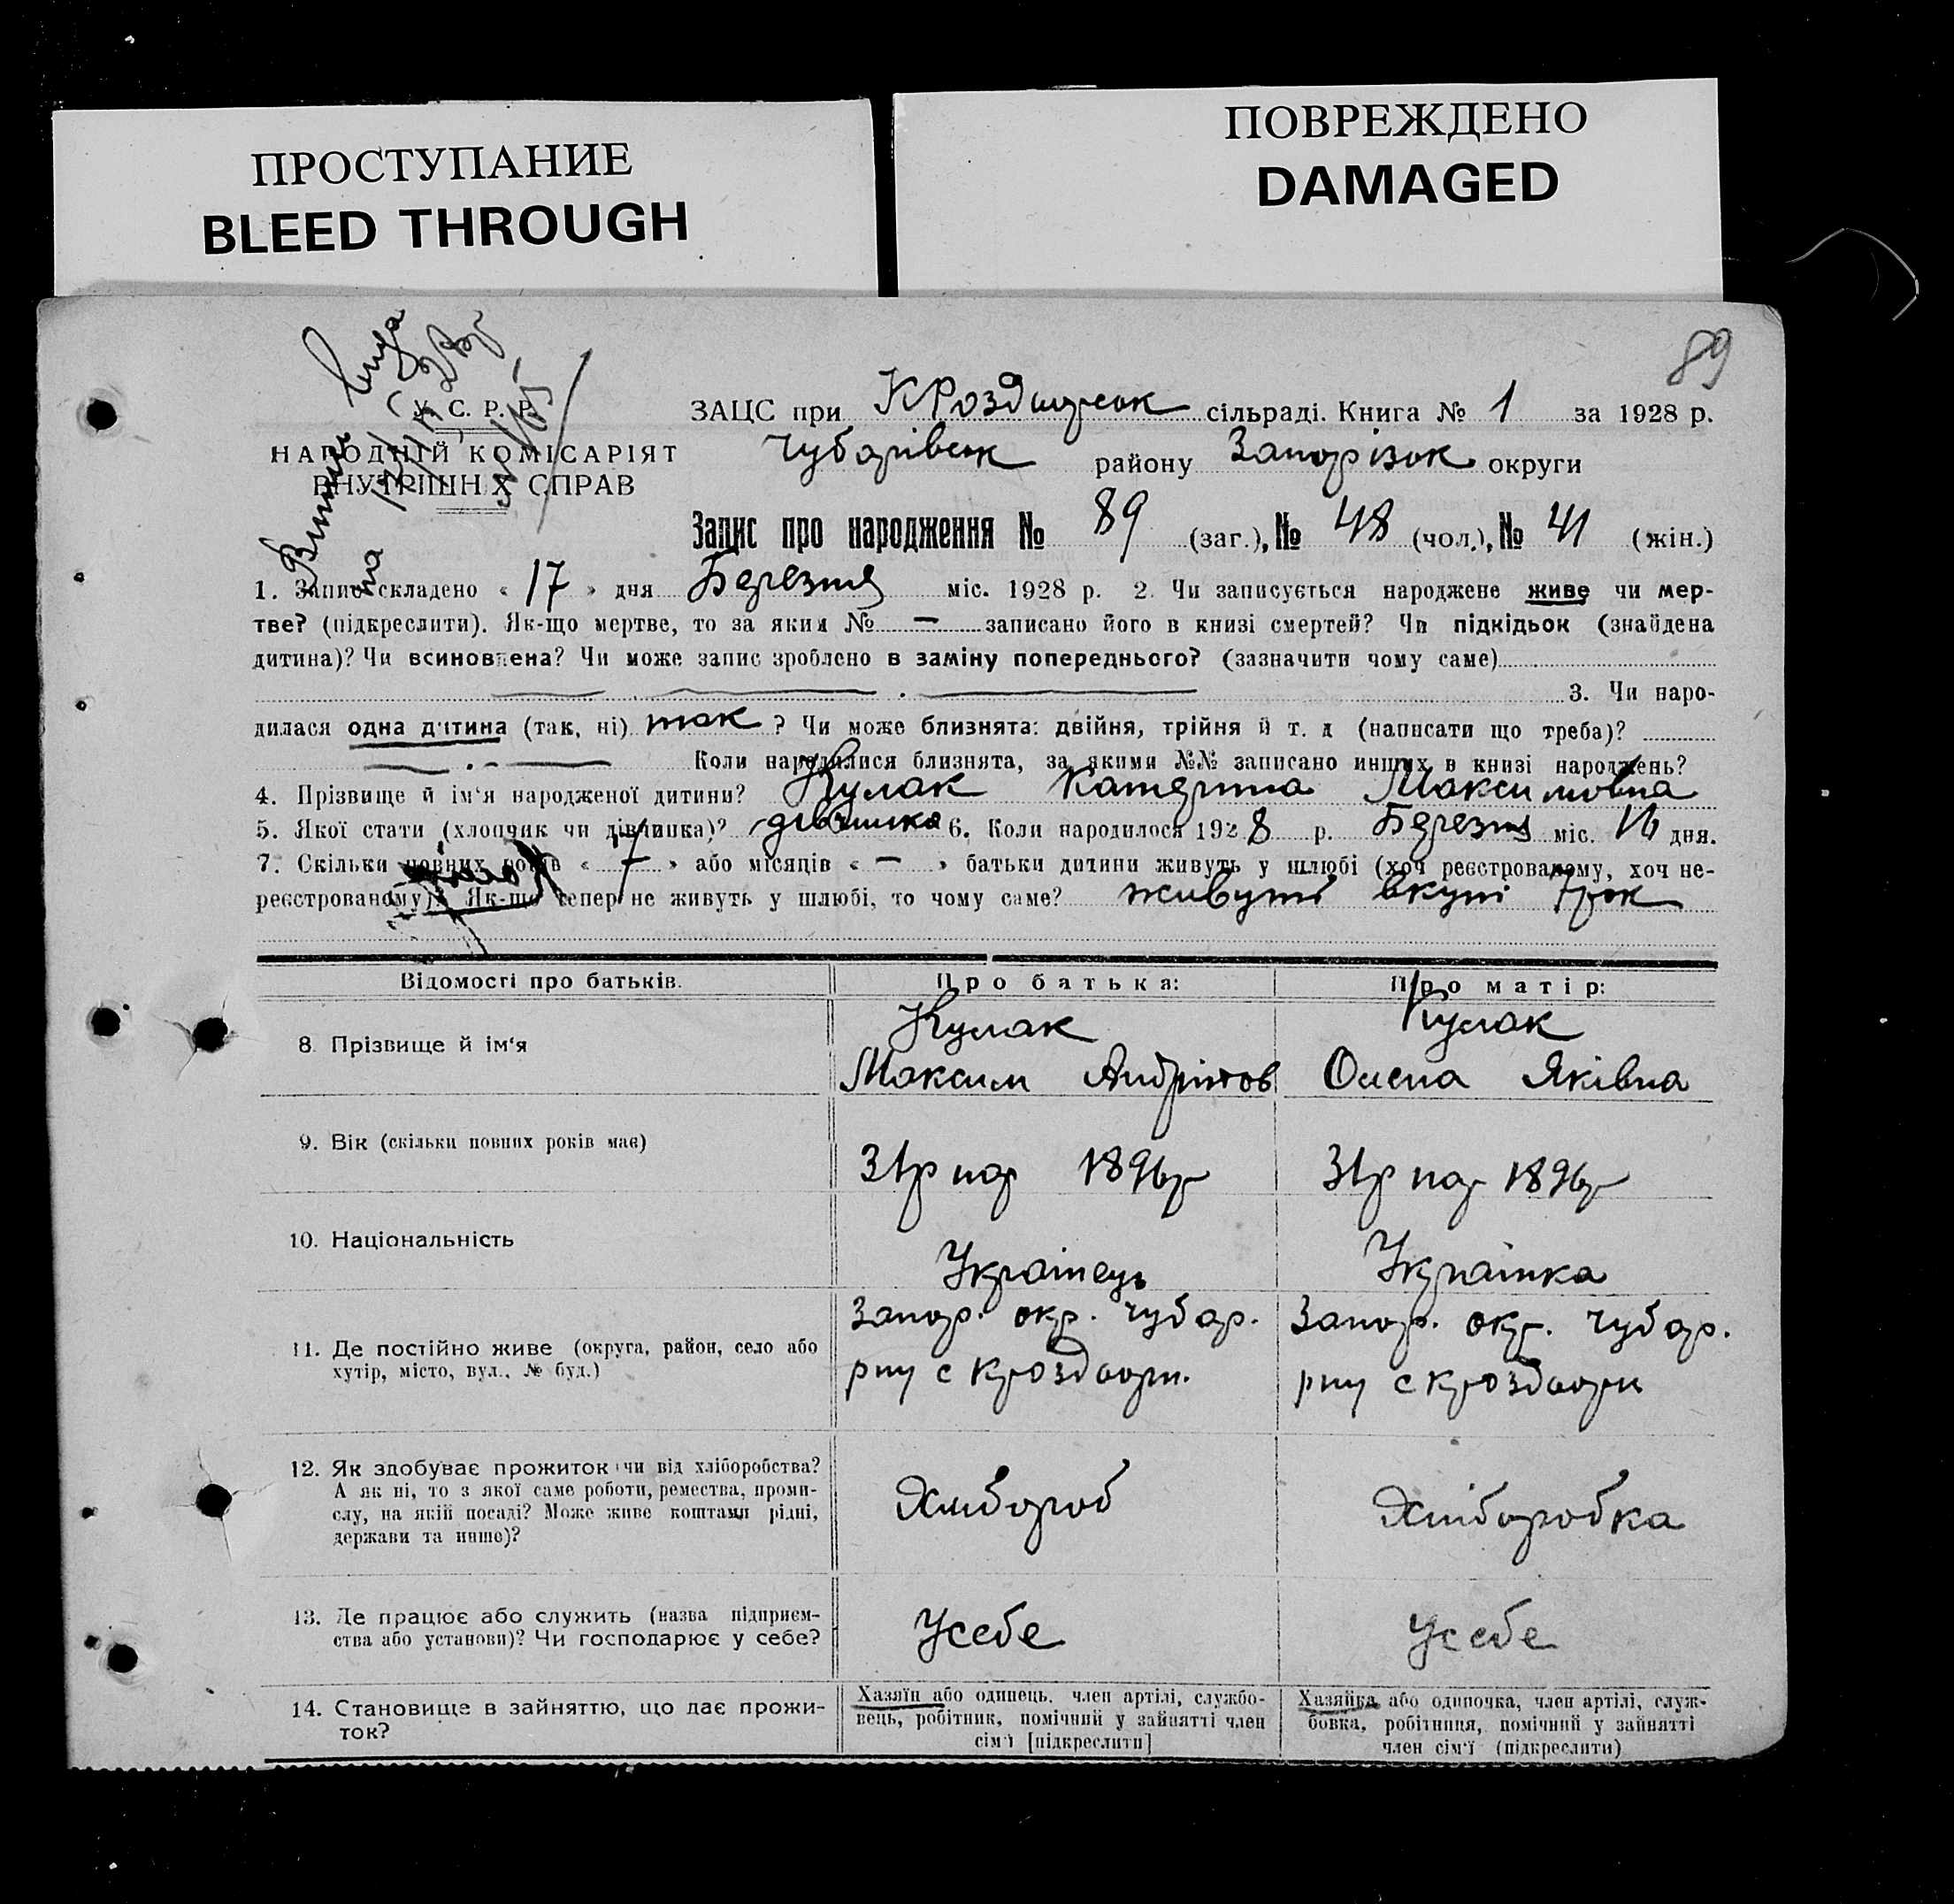 ПРОСТУПАНИЕ
BLEED THROUGH
ПОВРЕЖДЕНО
DAMAGED
89
У. С. Р. Р.
НАРОДНІЙ КОМІСАРІЯТ
ВНУТРІШНІХ СПРАВ
ЗАЦС при КРоздорськ сільраді. Книга № 1 за 1928 р.
Чубарівськ району Запорізьк округи
Запис про народження № 89 (заг.), № 48 (чол.), № 41 (жін.)
1. Запис складено « 17 » дня Березня міс. 1928 р. 2. Чи записується народжене живе чи мер-
тве? (підкреслити). Як-що мертве, то за яким № — записано його в книзі смертей? Чи підкідьок (знайдена
дитина)? Чи всиновлена? Чи може запис зроблено в заміну попереднього? (зазначити чому саме)
3. Чи наро-
дилася одна дитина (так, ні) так ? Чи може близнята: двійня, трійня й т. д (написати що треба)?
Коли народилися близнята, за якими №№ записано инших в книзі народжень?
4. Прізвище й ім'я народженої дитини? Кулак Катерина Максимовна
5. Якої стати (хлопчик чи дівчинка)? дівчинка 6. Коли народилося 1928 р. Березня міс. 16 дня.
7. Скільки повних років « 7 » або місяців « — » батьки дитини живуть у шлюбі (хоч реєстрованому, хоч не-
реєстрованому)? Як-що тепер не живуть у шлюбі, то чому саме? живуть вкупі 7 рок
Відомості про батьків. Про батька: Про матір:
8. Прізвище й ім'я
Кулак Кулак
Максим Андріков Олена Яківна
9. Вік (скільки повних років має)
31 р нар 1896 р 31 р нар 1896 р
10. Національність
Українець Українка
11. Де постійно живе (округа, район, село або
хутір, місто, вул., № буд.)
Запор. окр. Чубар. Запор. окр. Чубар.
рну с Кроздори. рну с Кроздори
12. Як здобуває прожиток чи від хліборобства?
А як ні, то з якої саме роботи, ремества, проми-
слу, на якій посаді? Може живе коштами рідні,
держави та инше)?
Хлібороб Хліборобка
13. Де працює або служить (назва підприєм-
ства або установи)? Чи господарює у себе?
Усебе Усебе
14. Становище в зайняттю, що дає прожи-
ток?
Хазяїн або одинець, член артілі, службо-
вець, робітник, помічний у зайнятті член
сім'ї [підкреслити]
Хазяйка або одиночка, член артілі, служ-
бовка, робітниця, помічний у зайнятті
член сім'ї (підкреслити)